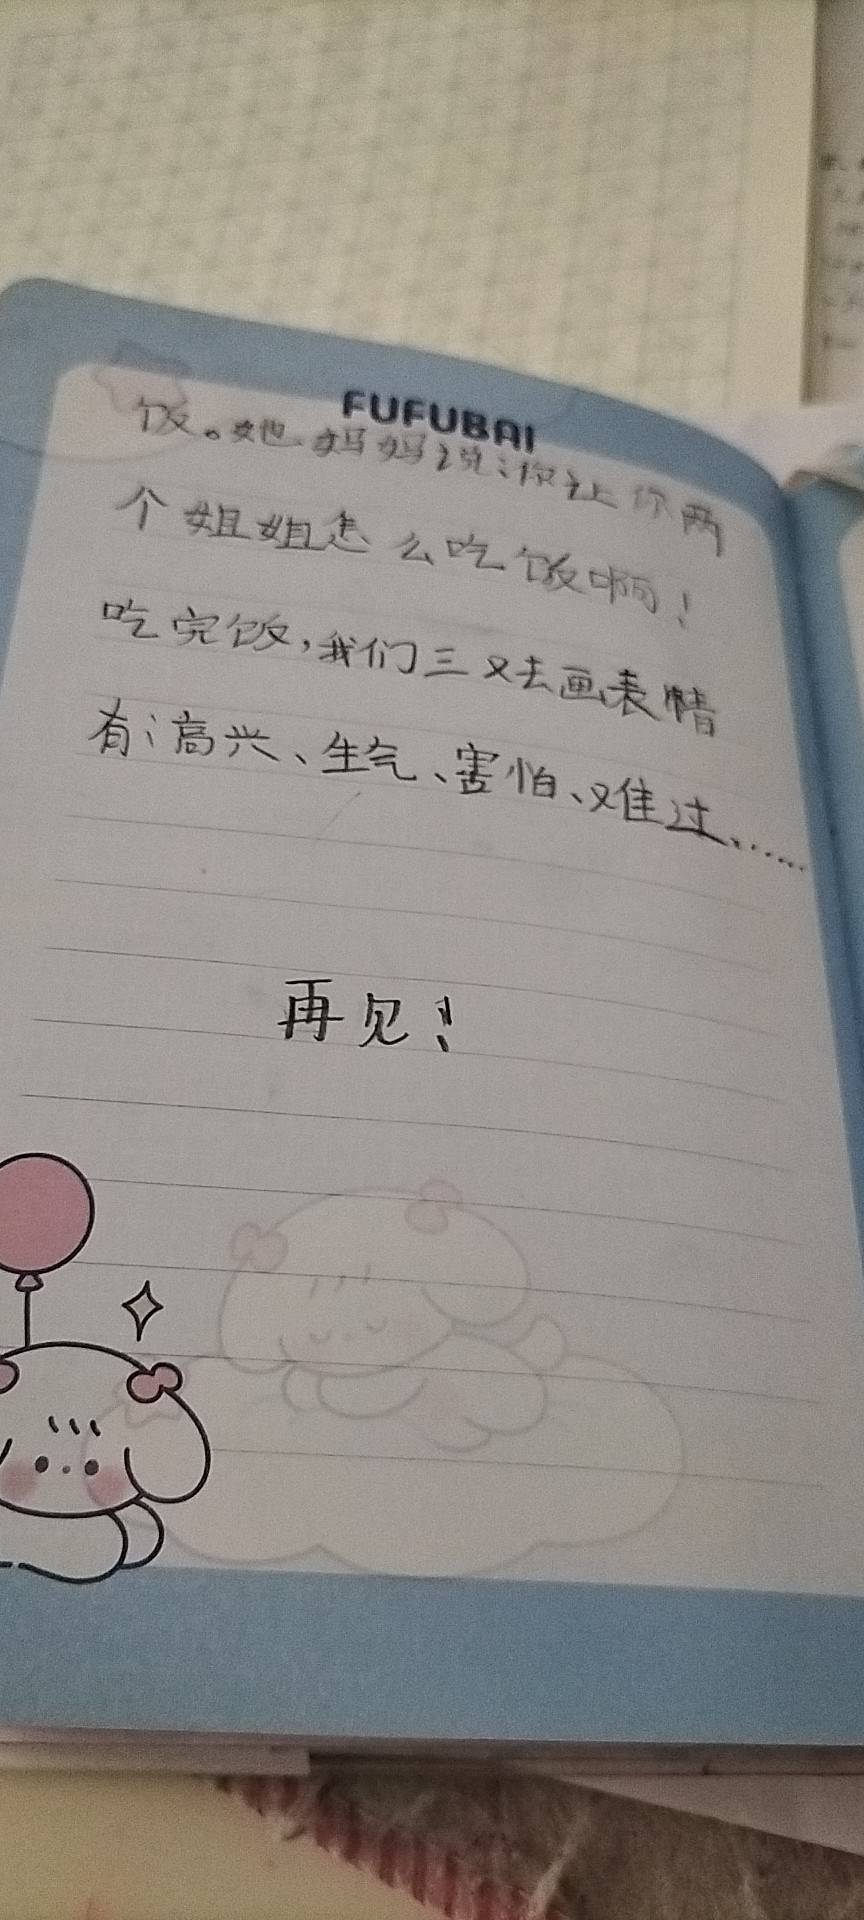 FUFUBAI
饭。她妈妈说:你让你两
个姐姐怎么吃饭啊!
吃完饭,我们三又去画表情
有:高兴、生气、害怕、难过、……
再见!